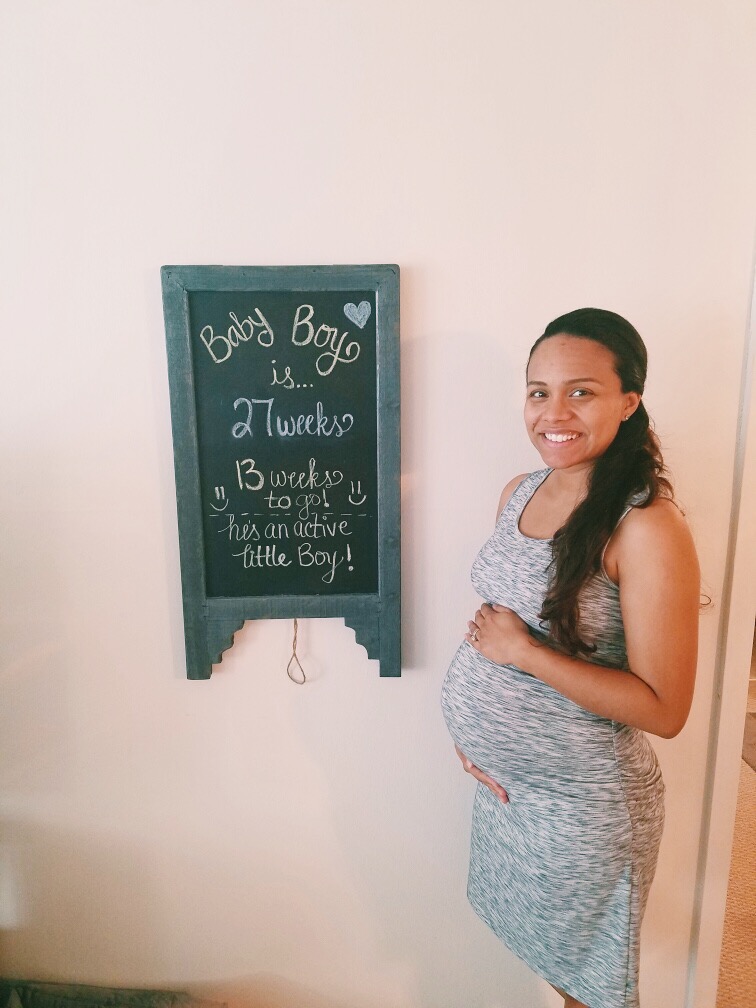 Baby Boy
is...
27 weeks
13 weeks
to go!
he's an active
little Boy!